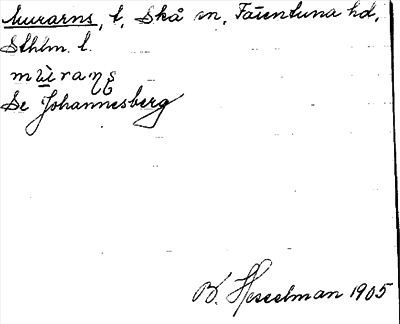 Murarns, t, Skå sn, Färentuna hd,
Sthlm. l.
Se Johannesberg
B. Hesselman 1905